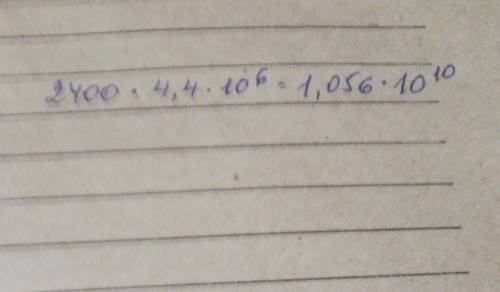 2400 · 4,4 · 10⁶ = 1,056 · 10¹⁰